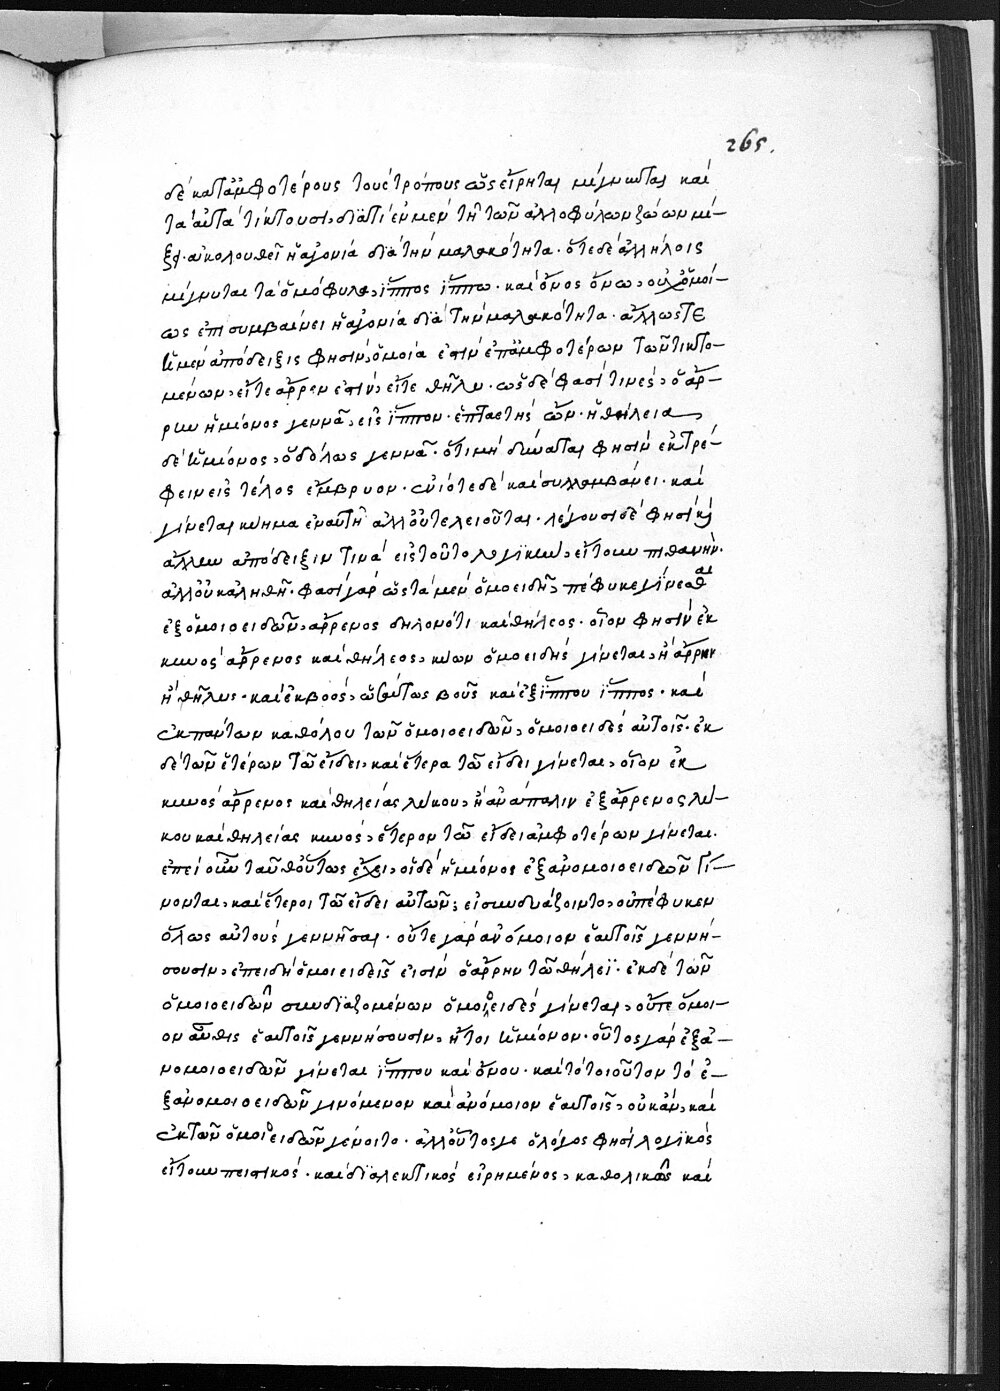 265.
δὲ κατ' ἀμφοτέρους τοὺς τρόπους ὡς εἴρηται μίγνυται καὶ
τὰ αὐτὰ τίκτουσι, διατί ἐν μὲν τῇ τῶν ἀλλοφύλων ζώων μί-
ξει ἀκολουθεῖ ἡ ἀγονία διὰ τὴν μαλακότητα. ὅτε δὲ ἀλλήλοις
μίγνυται τὰ ὁμόφυλα, ἵππος ἵππω. καὶ ὄνος ὄνω, οὐχ ὁμοί-
ως ἐπισυμβαίνει ἡ ἀγονία διὰ τὴν μαλακότητα. ἄλλως τε
ἡ μὲν ἀπόδειξις φησὶν, ὁμοία ἐστὶν ἐπ' ἀμφοτέρων τῶν τικτο-
μένων, εἴτε ἄρρεν ἐστὶν, εἴτε θῆλυ. ὡς δὲ φασί τινες, ὁ ἄρ-
ρην ἡμίονος γεννᾶ, εἰς ἵππον. ἑπταετὴς ὤν. ἡ θήλεια
δὲ ἡμίονος, οὐδόλως γεννᾶ. ὅτι μὴ δύναται φησὶν ἐκτρέ-
φειν εἰς τέλος ἔμβρυον. ἐνίοτε δὲ καὶ συλλαμβάνει. καὶ
γίνεται κύημα ἐν αὐτῇ ἀλλ' οὐ τελειοῦται. λέγουσι δὲ φησὶ καὶ
ἄλλην ἀπόδειξιν τινὰ εἰς τοῦτο λογικὴν, εἴτουν πιθανήν.
ἀλλ' οὐκ ἀληθῆ. φασὶ γὰρ ὡς τὰ μὲν ὁμοειδῆ, πέφυκε γίνεσθαι
ἐξ ὁμοιοειδῶν, ἄρρενος δηλονότι καὶ θήλεος. οἷον φησὶν ἐκ
κυνὸς ἄρρενος καὶ θήλεος, κύων ὁμοειδὴς γίνεται, ἢ ἄρρην
ἢ θῆλυς. καὶ ἐκ βοὸς, ὡσαύτως βοῦς καὶ ἐξ ἵππου ἵππος. καὶ
ἐκ πάντων καθόλου τῶν ὁμοιοειδῶν, ὁμοιοειδὲς αὐτοῖς. ἐκ
δὲ τῶν ἑτέρων τῶ εἴδει, καὶ ἕτερα τῶ εἴδει γίνεται, οἷον ἐκ
κυνὸς ἄρρενος καὶ θηλείας λύκου, ἢ ἀνάπαλιν ἐξ ἄρρενος λύ-
κου καὶ θηλείας κυνὸς, ἕτερον τῶ εἴδει ἀμφοτέρων γίνεται.
ἐπεὶ οὖν ταῦθ' οὕτως ἔχει, οἱ δὲ ἡμίονος ἐξ ἀνομοιοειδῶν γί-
νονται, καὶ ἕτεροι τῶ εἴδει αὐτῶν, εἰ συνδυάζοιντο, οὐ πέφυκεν
ὅλως αὐτοὺς γεννῆσαι. οὔτε γὰρ ἂν ὅμοιον ἑαυτοῖς γεννή-
σουσιν, ἐπειδὴ ὁμοειδεῖς εἰσὶν ὁ ἄρρην τῶ θήλεϊ. ἐκ δὲ τῶν
ὁμοιοειδῶν συνδυαζομένων ὁμοιοειδὲς γίνεται, οὔτε ὅμοι-
ον αὖθις ἑαυτοῖς γεννήσουσιν, ἤτοι ἡμίονον. οὗτος γὰρ ἐξ ἀ-
νομοιοειδῶν γίνεται ἵππου καὶ ὄνου. καὶ τὸ τοιοῦτον τὸ ἐ-
ξ ἀνομοιοειδῶν γινόμενον καὶ ἀνόμοιον ἑαυτοῖς, οὐκ ἂν, καὶ
ἐκ τῶν ὁμοιοειδῶν γένοιτο. ἀλλ' οὗτός γε ὁ λόγος φησὶ λογικὸς
εἴτουν πειστικός. καὶ διαλεκτικὸς εἰρημένος, καθολικῶς καὶ